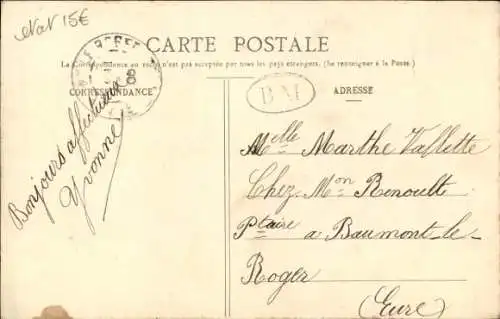 15€
CARTE POSTALE
La Correspondance au recto n'est pas acceptée par tous les pays étrangers. (Se renseigner à la Poste.)
CORRESPONDANCE
BM
ADRESSE
Bonjours affectueux
Yvonne
Melle Marthe Vallette
Chez Mon Renoult
Ptaire a Baumont-le-
Roger
(Eure)